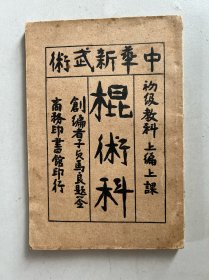 中華新武術
初級教科 上編上課
棍術科
創編者子貞馬良題簽
商務印書館印行